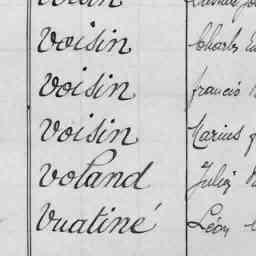 Voisin Charles
Voisin francis
Voisin Marius
Voland Julie
Vuatiné Léon